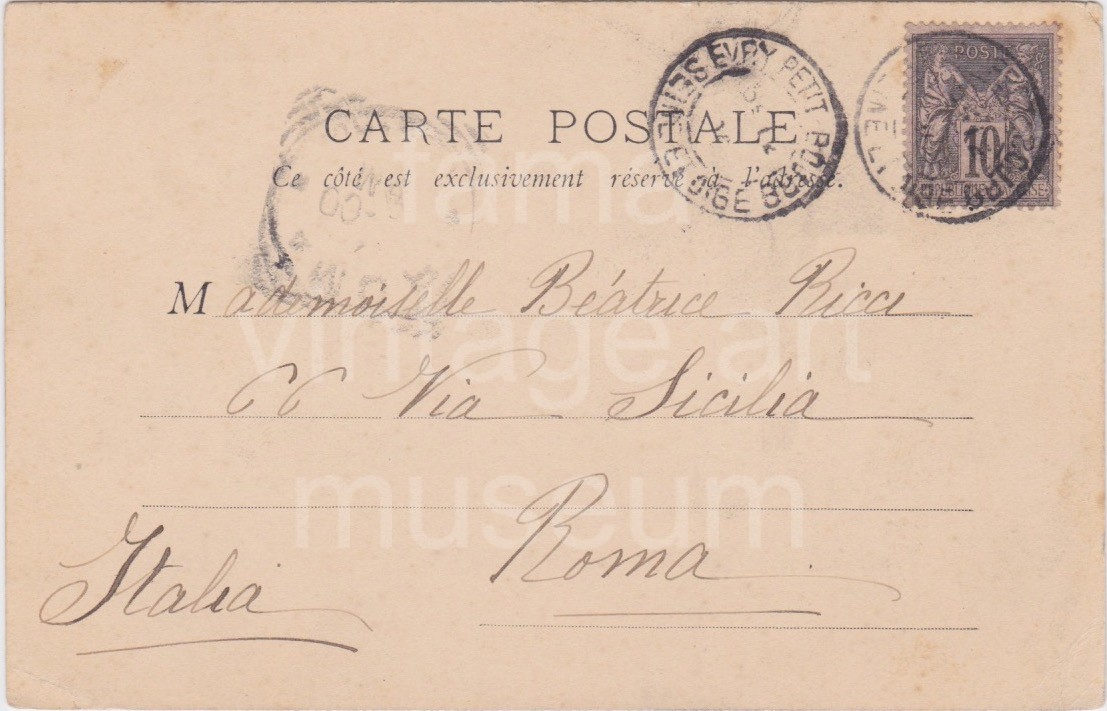 CARTE POSTALE
Ce côté est exclusivement réservé à l'adresse.
SEINE ET OISE EVRY PETIT BOURG
POSTE
10
Mademoiselle Béatrice Ricci
66 Via Sicilia
Roma
Italia
fama
vintage art
museum